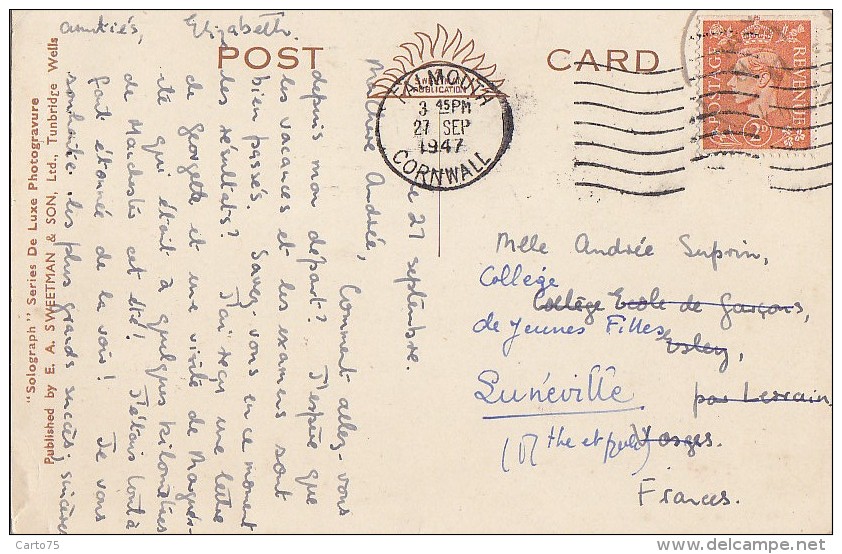 POST CARD
SWEETMAN
PUBLICATION
FALMOUTH
3 45PM
27 SEP
1947
CORNWALL
POSTAGE
REVENUE
2D
"Solograph" Series De Luxe Photogravure
Published by E. A. SWEETMAN & SON, Ltd., Tunbridge Wells
le 27 septembre.
Andrée,
Comment allez-vous
depuis mon départ? J'espère que
les vacances et les examens sont
bien passés. Savez-vous en ce moment
les résultats? J'ai reçu une lettre
de Georgette et une visite de Margue-
rite qui était à quelques kilomètres
de Manchester cet été! J'étais tout à
fait étonnée de la voir! Je vous
souhaite les plus grands succès, sincères
amitiés,
Elizabeth.
Mlle Andrée Suprin,
Collège
Collège Ecole de Garçons,
de Jeunes Filles
Lunéville
par Lerrain
(M the et Mlle) Vosges.
France.
Carto75
delcampe.net